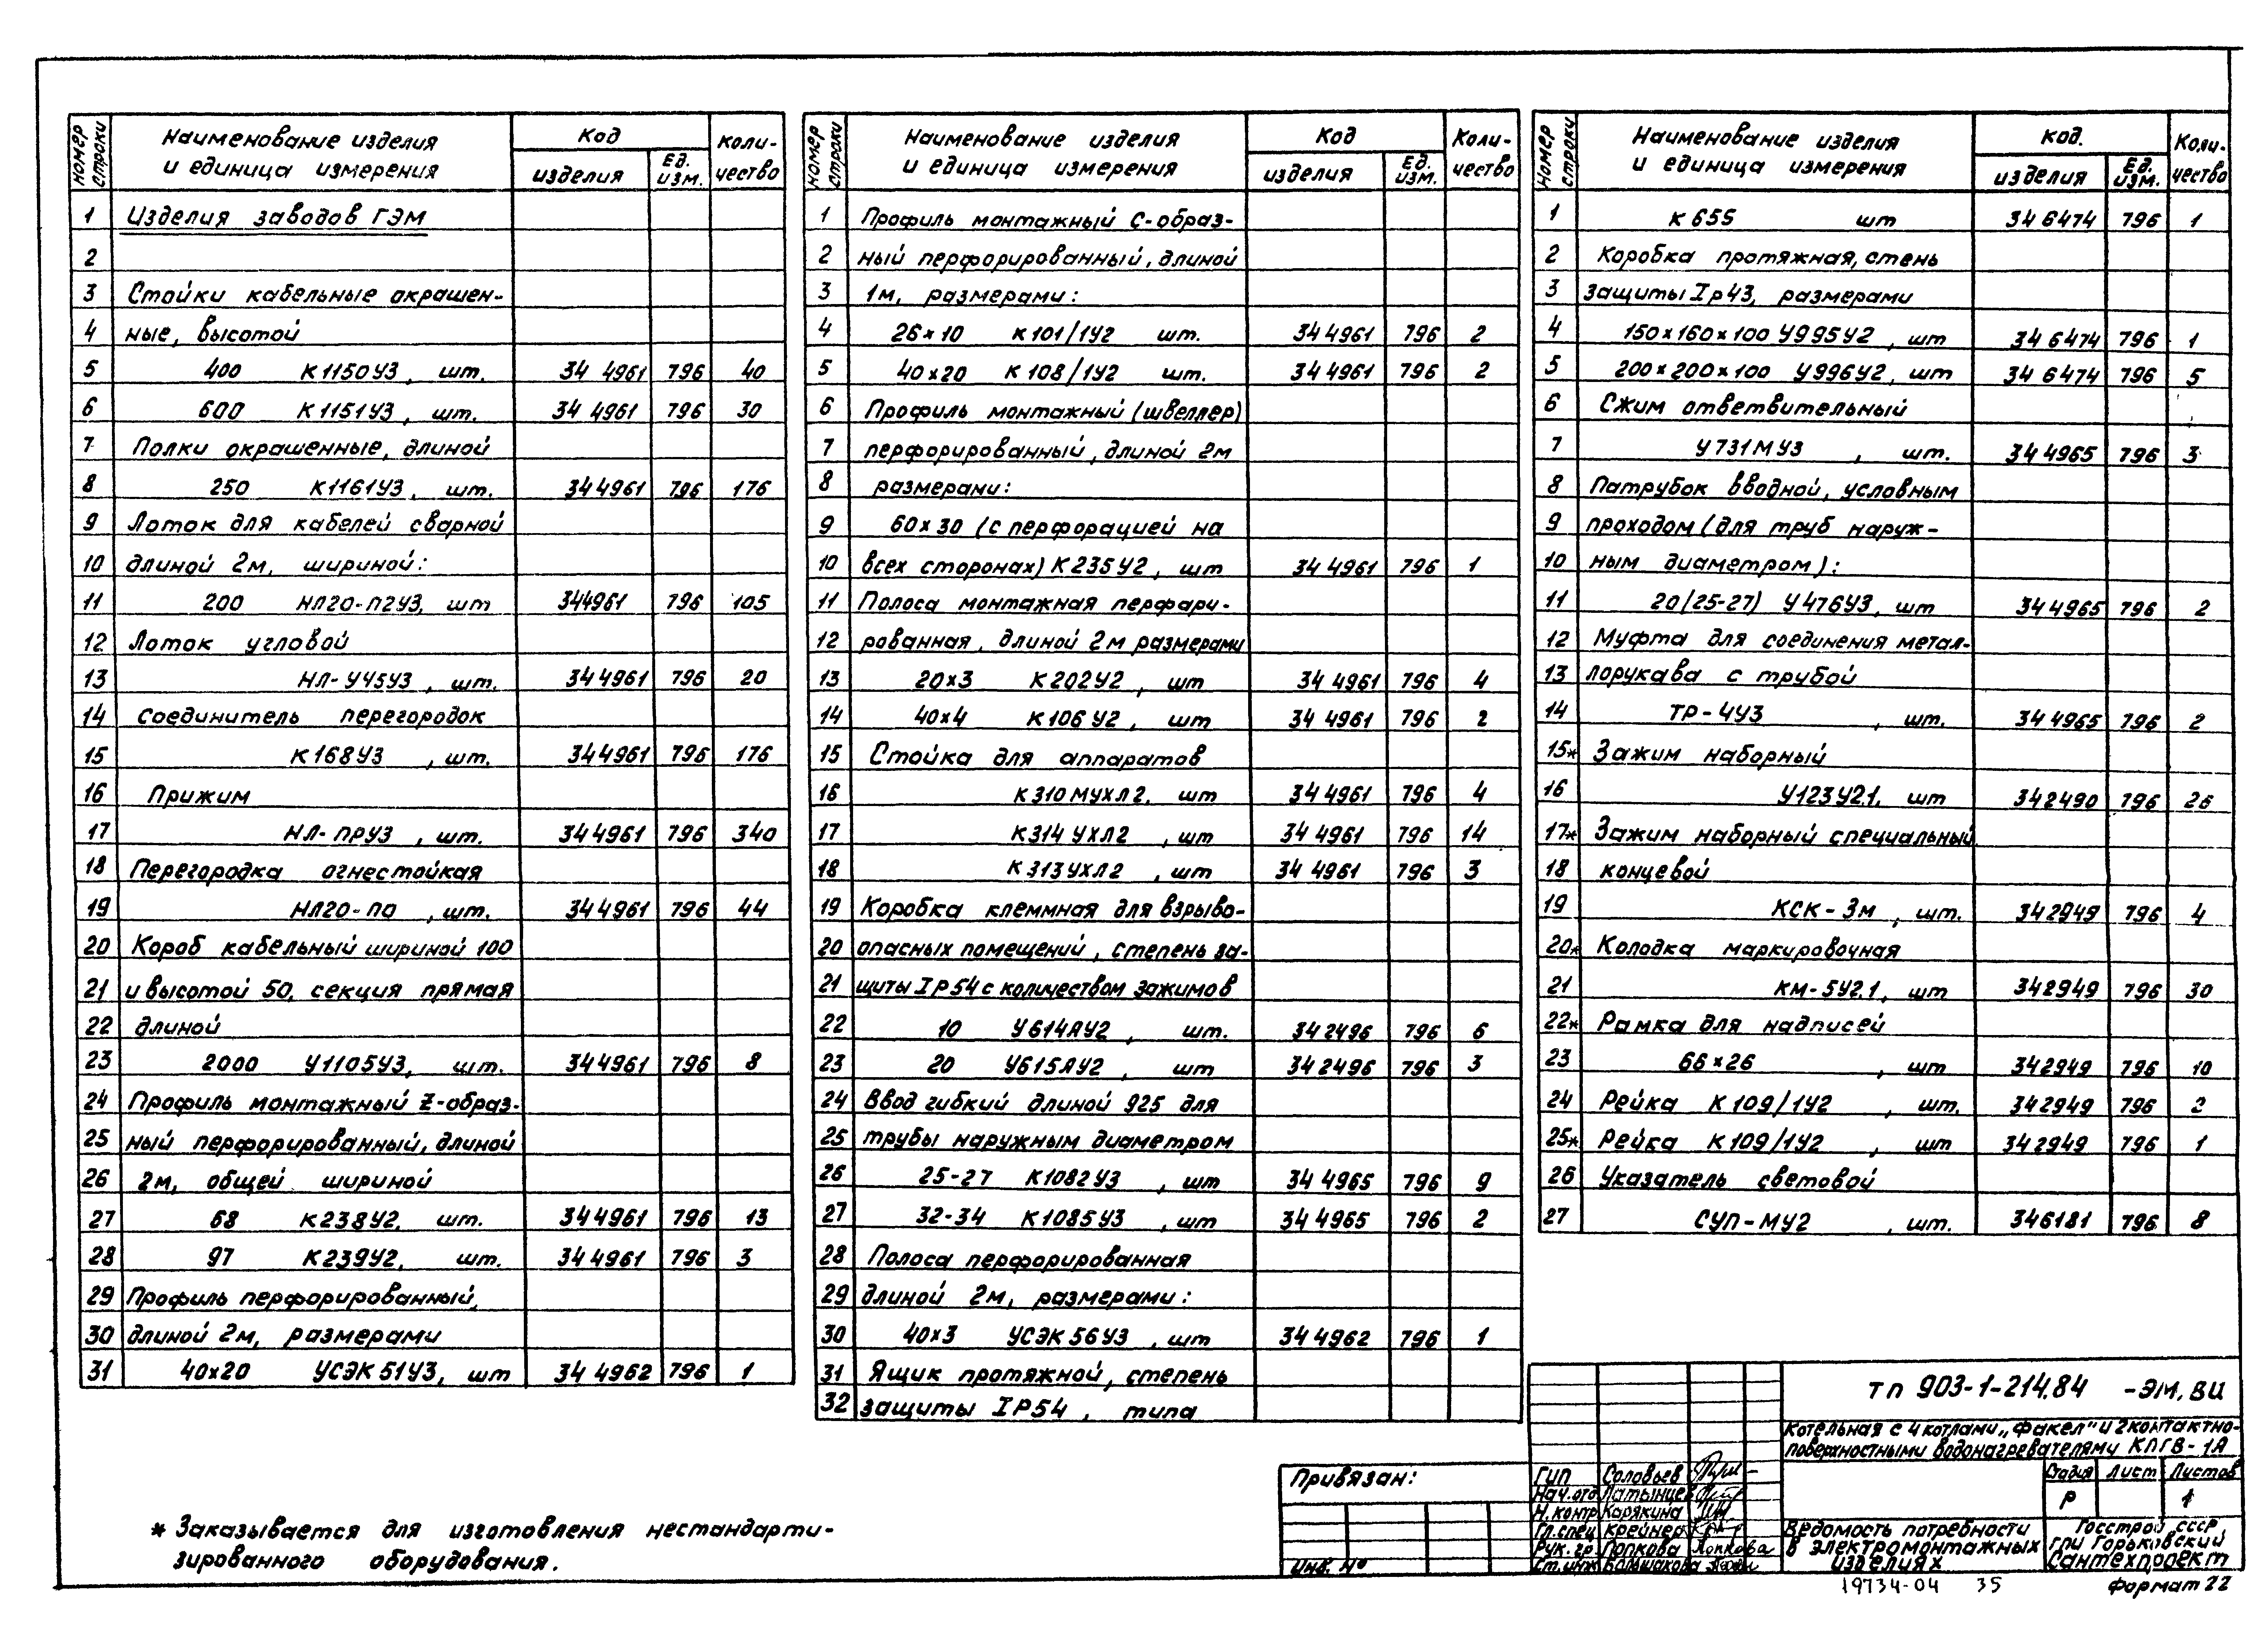 Номер строки | Наименование изделия и единица измерения | Код изделия | Ед. изм. | Количество
1 Изделия заводов ГЭМ
2
3 Стойки кабельные окрашен-
4 ные, высотой
5 400 К1150У3, шт. 34 4961 796 40
6 600 К1151У3, шт. 34 4961 796 30
7 Полки окрашенные, длиной
8 250 К1161У3, шт. 34 4961 796 176
9 Лоток для кабелей сварной
10 длиной 2м, шириной:
11 200 НЛ20-П2У3, шт 344961 796 105
12 Лоток угловой
13 НЛ-У45У3, шт. 34 4961 796 20
14 соединитель перегородок
15 К168У3, шт. 34 4961 796 176
16 Прижим
17 НЛ-ПРУ3, шт. 34 4961 796 340
18 Перегородка огнестойкая
19 НЛ20-ПО, шт. 34 4961 796 44
20 Короб кабельный шириной 100
21 и высотой 50, секция прямая
22 длиной
23 2000 У1105У3, шт. 34 4961 796 8
24 Профиль монтажный Z-образ-
25 ный перфорированный, длиной
26 2м, общей шириной
27 68 К238У2, шт. 34 4961 796 13
28 97 К239У2, шт. 34 4961 796 3
29 Профиль перфорированный,
30 длиной 2м, размерами
31 40х20 УСЭК51У3, шт 34 4962 796 1
Номер строки | Наименование изделия и единица измерения | Код изделия | Ед. изм. | Количество
1 Профиль монтажный С-образ-
2 ный перфорированный, длиной
3 1м, размерами:
4 26х10 К101/1У2 шт. 34 4961 796 2
5 40х20 К108/1У2 шт. 34 4961 796 2
6 Профиль монтажный (швеллер)
7 перфорированный, длиной 2м
8 размерами:
9 60х30 (с перфорацией на
10 всех сторонах) К235У2, шт 34 4961 796 1
11 Полоса монтажная перфари-
12 рованная, длиной 2м размерами
13 20х3 К202У2, шт 34 4961 796 4
14 40х4 К106У2, шт 34 4961 796 2
15 Стойка для аппаратов
16 К310МУХЛ2, шт 34 4961 796 4
17 К314УХЛ2, шт 34 4961 796 14
18 К313УХЛ2, шт 34 4961 796 3
19 Коробка клеммная для взрыво-
20 опасных помещений, степень за-
21 щиты IP54 с количеством зажимов
22 10 У614АУ2, шт. 34 2496 796 6
23 20 У615АУ2, шт 34 2496 796 3
24 Ввод гибкий длиной 925 для
25 трубы наружным диаметром
26 25-27 К1082У3, шт 34 4965 796 9
27 32-34 К1085У3, шт 34 4965 796 2
28 Полоса перфорированная
29 длиной 2м, размерами:
30 40х3 УСЭК56У3, шт 34 4962 796 1
31 Ящик протяжной, степень
32 защиты IP54, типа
Номер строки | Наименование изделия и единица измерения | Код. изделия | Ед. изм. | Количество
1 К655 шт 34 6474 796 1
2 Коробка протяжная, стень
3 защиты Iр43, размерами
4 150х160х100 У995У2, шт 34 6474 796 1
5 200х200х100 У996У2, шт 34 6474 796 5
6 Сжим ответвительный
7 У731МУ3, шт. 34 4965 796 3
8 Патрубок вводной, условным
9 проходом (для труб наруж-
10 ным диаметром):
11 20/25-27) У476У3, шт 34 4965 796 2
12 Муфта для соединения метал-
13 лорукава с трубой
14 ТР-4У3, шт. 34 4965 796 2
15* Зажим наборный
16 У123У2.1, шт 34 2490 796 26
17* Зажим наборный специальный
18 концевой
19 КСК-3м, шт. 34 2949 796 4
20* Колодка маркировочная
21 КМ-5У2.1, шт 34 2949 796 30
22* Рамка для надписей
23 66х26, шт 34 2949 796 10
24 Рейка К109/1У2, шт. 34 2949 796 2
25* Рейка К109/1У2, шт 34 2949 796 1
26 Указатель световой
27 СУП-МУ2, шт. 346181 796 8
* Заказывается для изготовления нестандарти-
зированного оборудования.
Привязан:
Инв. №
ГИП Соловьев
Нач.отд Латынцев
Н.контр Карякина
Гл.спец Крейнер
Рук.гр. Попкова Попкова
Ст.инж Большакова
тп 903-1-214.84 -ЭМ, ВИ
Котельная с 4 котлами „Факел" и 2 контактно-
поверхностными водонагревателями КПГВ-1А
Стадия Лист Листов
Р 1
Ведомость потребности
в электромонтажных
изделиях
Госстрой СССР
ГПИ Горьковский
Сантехпроект
19734-04 35
Формат 22